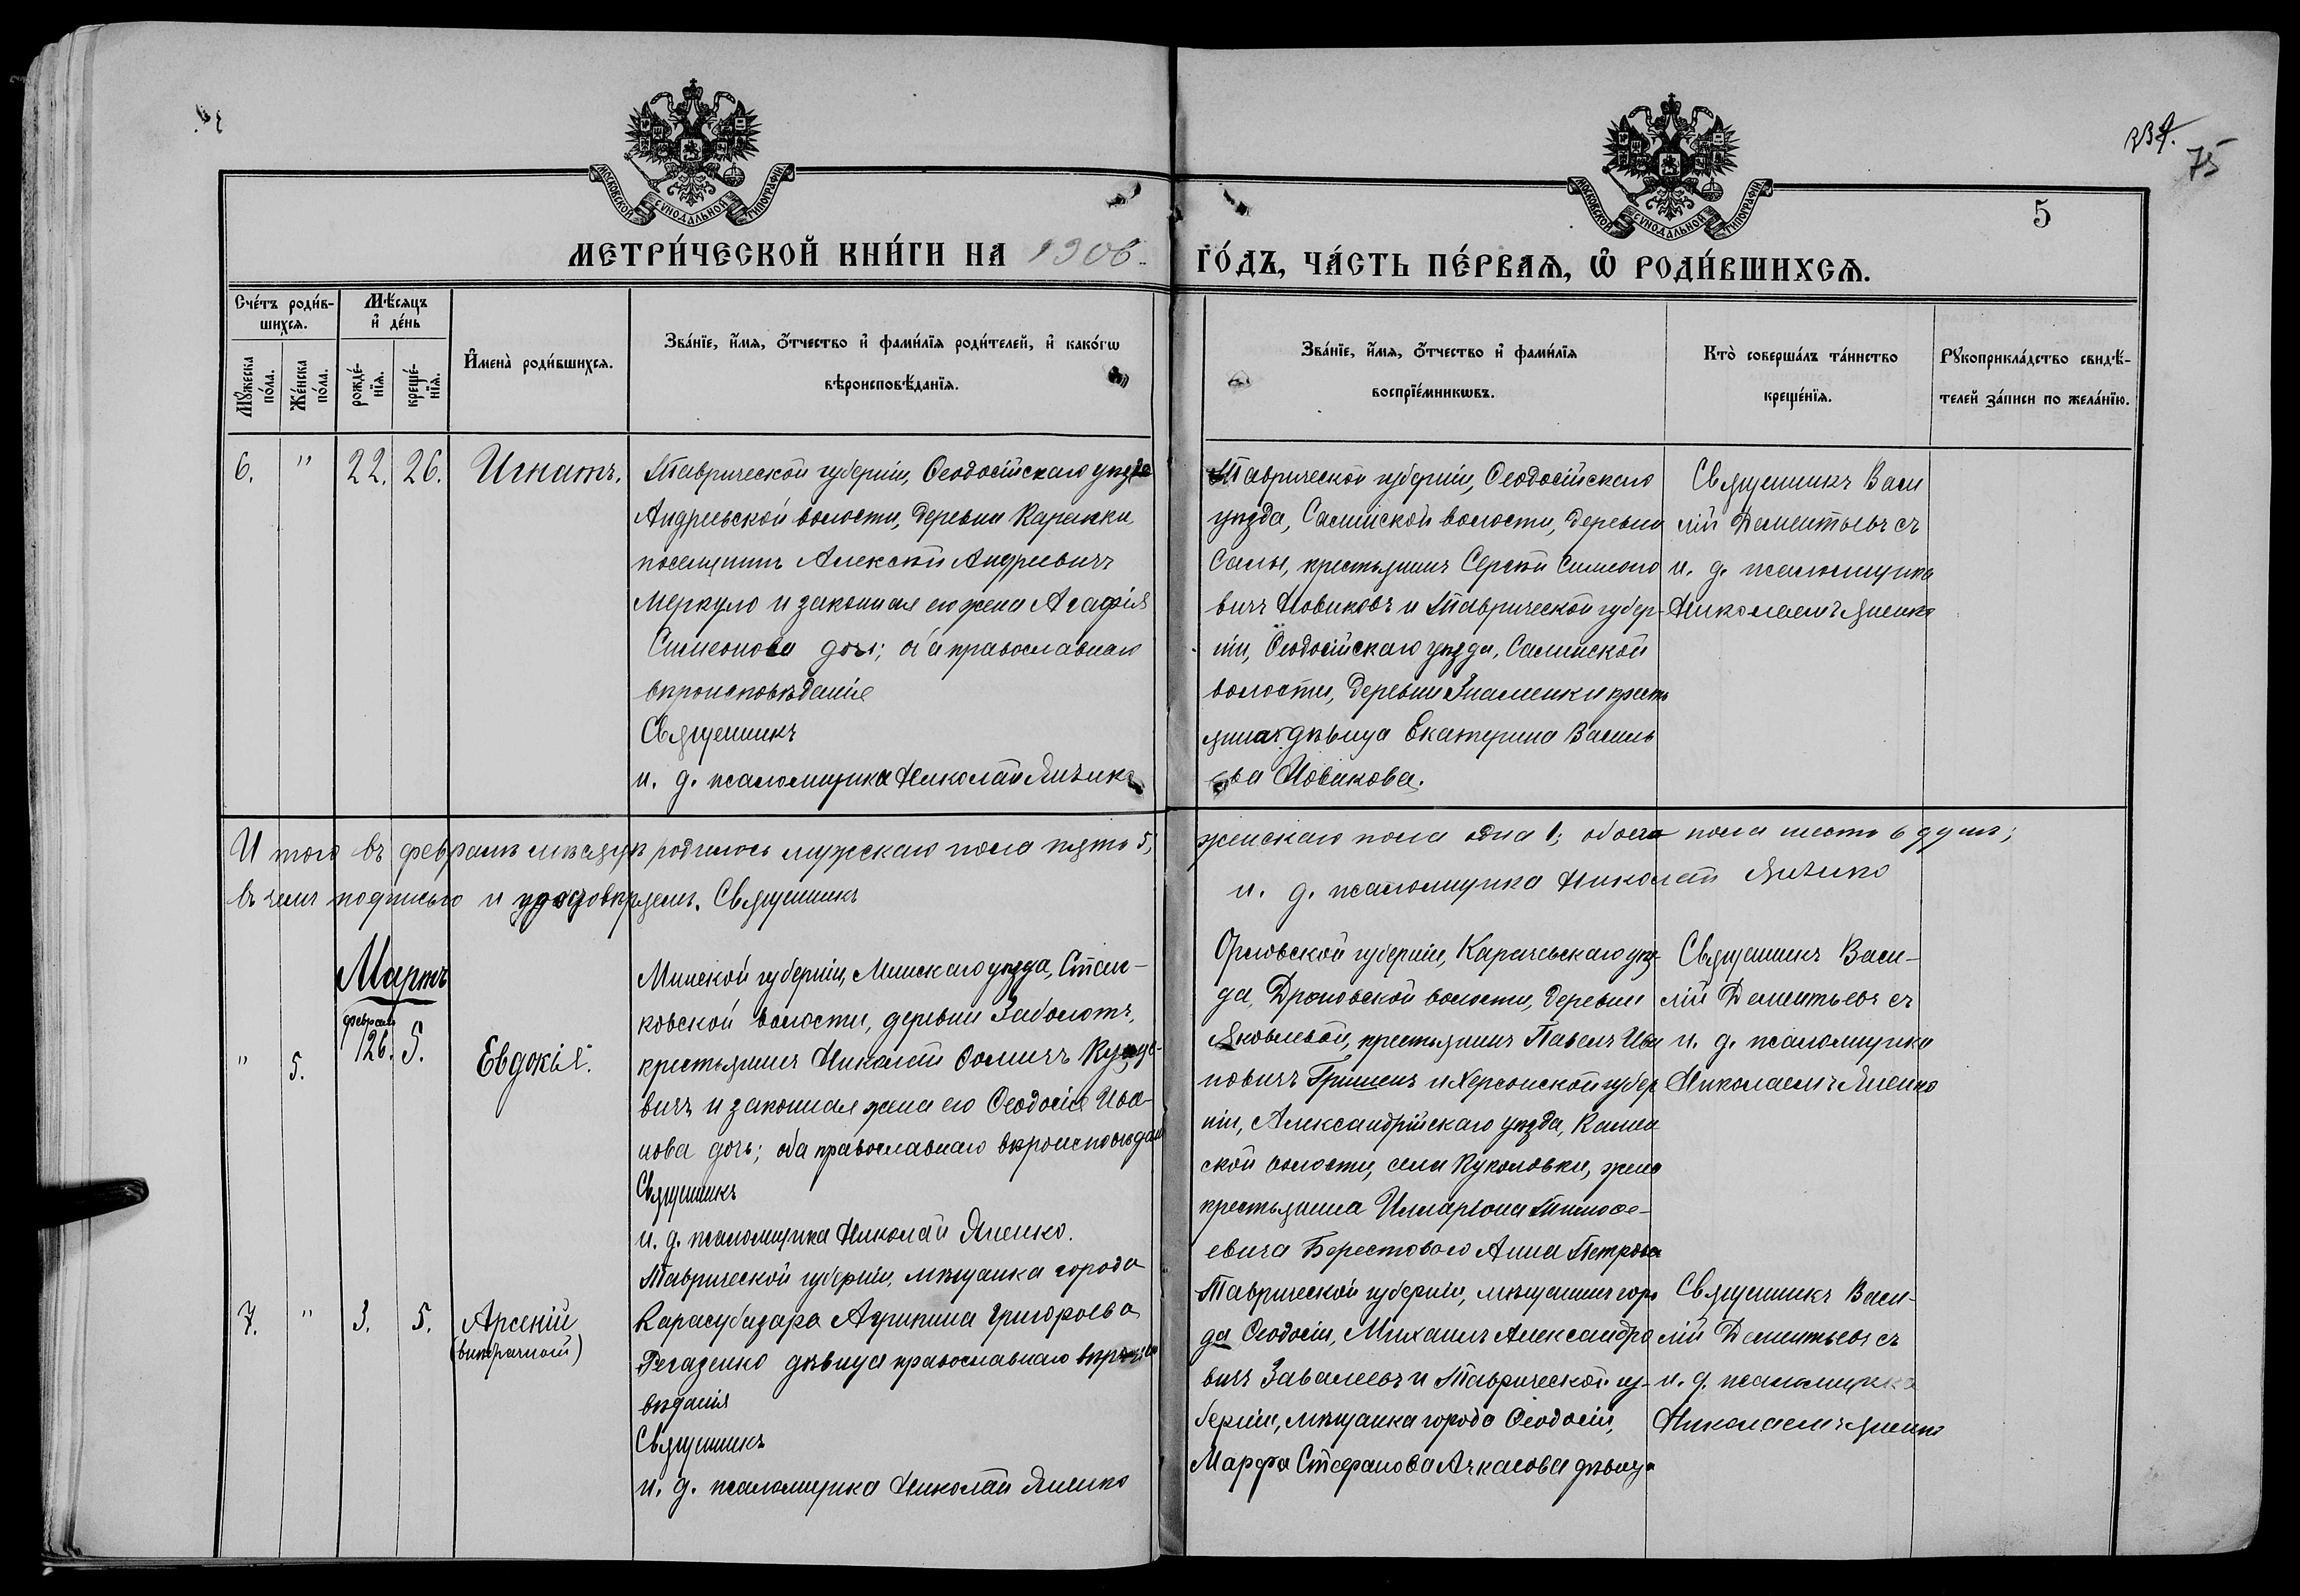 234.
75
5
МОСКОВСКОЙ СѴНОДАЛЬНОЙ ТИПОГРАФІИ
МОСКОВСКОЙ СѴНОДАЛЬНОЙ ТИПОГРАФІИ
МЕТРИ́ЧЕСКОЙ КНИ́ГИ НА 1906.
ГО́ДЪ, ЧА́СТЬ ПЕ́РВАѦ, Ѽ РОДИ́ВШИХСѦ.
Сче́тъ роди́в-
шихсѧ.
Мꙋ́жеска по́ла.
Же́нска по́ла.
Мѣ́сѧцъ
и҆ де́нь
рожде́-
нїѧ.
креще́-
нїѧ.
И҆мена̀ роди́вшихсѧ.
Зва́нїе, и҆́мѧ, ѻ҆́тчество и҆ фами́лїѧ роди́телей, и҆ како́гѡ
вѣроисповѣ́данїѧ.
Зва́нїе, и҆́мѧ, ѻ҆́тчество и҆ фами́лїѧ
воспрїе́мникѡвъ.
Кто̀ соверша́лъ та́инство
креще́нїѧ.
Рꙋкоприкла́дство свидѣ́-
телей за́писи по жела́нїю.
6. " 22. 26. Игнатъ.
Таврической губерніи, Ѳеодосійскаго уѣзда
Андреевской волости, деревни Каранки
поселянинъ Алексѣй Андреевичъ
Меркуло и законная его жена Агафія
Симеонова дочь; оба православнаго
вѣроисповѣданія
Священникъ
и. д. псаломщика Николай Яненко
Таврической губерніи, Ѳеодосійскаго
уѣзда, Салынской волости, деревни
Салы, крестьянинъ Сергѣй Симеоно
вичъ Новиковъ и Таврической губер-
ніи, Ѳеодосійскаго уѣзда, Салынской
волости, деревни Знаменки кресть
янская дѣвица Екатерина Василь
ева Новикова.
Священникъ Васи
лій Дементьевъ съ
и. д. псаломщика
Николаемъ Яненко
Итого въ февралѣ мѣсяцѣ родилось мужскаго пола пять 5; женскаго пола одна 1; обоего пола шесть 6 душъ;
въ чемъ подписью и удостовѣряемъ. Священникъ
и. д. псаломщика Николай Яненко
Мартъ
февраля
" 5. 26. 5. Евдокія.
Минской губерніи, Минскаго уѣзда, Стань-
ковской волости, деревни Заболоть,
крестьянинъ Николай Ѳомичъ
вичъ и законная жена его Ѳеодосія Ива-
нова дочь; оба православнаго вѣроисповѣдан
Священникъ
и. д. псаломщика Николай Яненко.
Орловской губерніи, Карачевскаго уѣз-
да, Дроновской волости, деревни
Яковлевой, крестьянинъ Павелъ Ива
новичъ Гришенъ и Херсонской губер
ніи, Александрійскаго уѣзда,
ской волости, села Куколовки, жена
крестьянина Илларіона Тимоѳе-
евича Берестового Анна Петрова
Священникъ Васи-
лій Дементьевъ съ
и. д. псаломщика
Николаемъ Яненко
7. " 3. 5. Арсеній
(внѣбрачный)
Таврической губерніи, мѣщанка города
Карасубазара Агрипина Григорьева
Регазенко дѣвица православнаго вѣроиспо
вѣданія
Священникъ
и. д. псаломщика Николай Яненко
Таврической губерніи, мѣщанинъ горо
да Ѳеодосіи, Михаилъ Александро
вичъ Завалеевъ и Таврической гу-
берніи, мѣщанка города Ѳеодосіи,
Марфа Стефанова Ачкасова дѣвица
Священникъ Васи-
лій Дементьевъ съ
и. д. псаломщика
Николаемъ Яненко